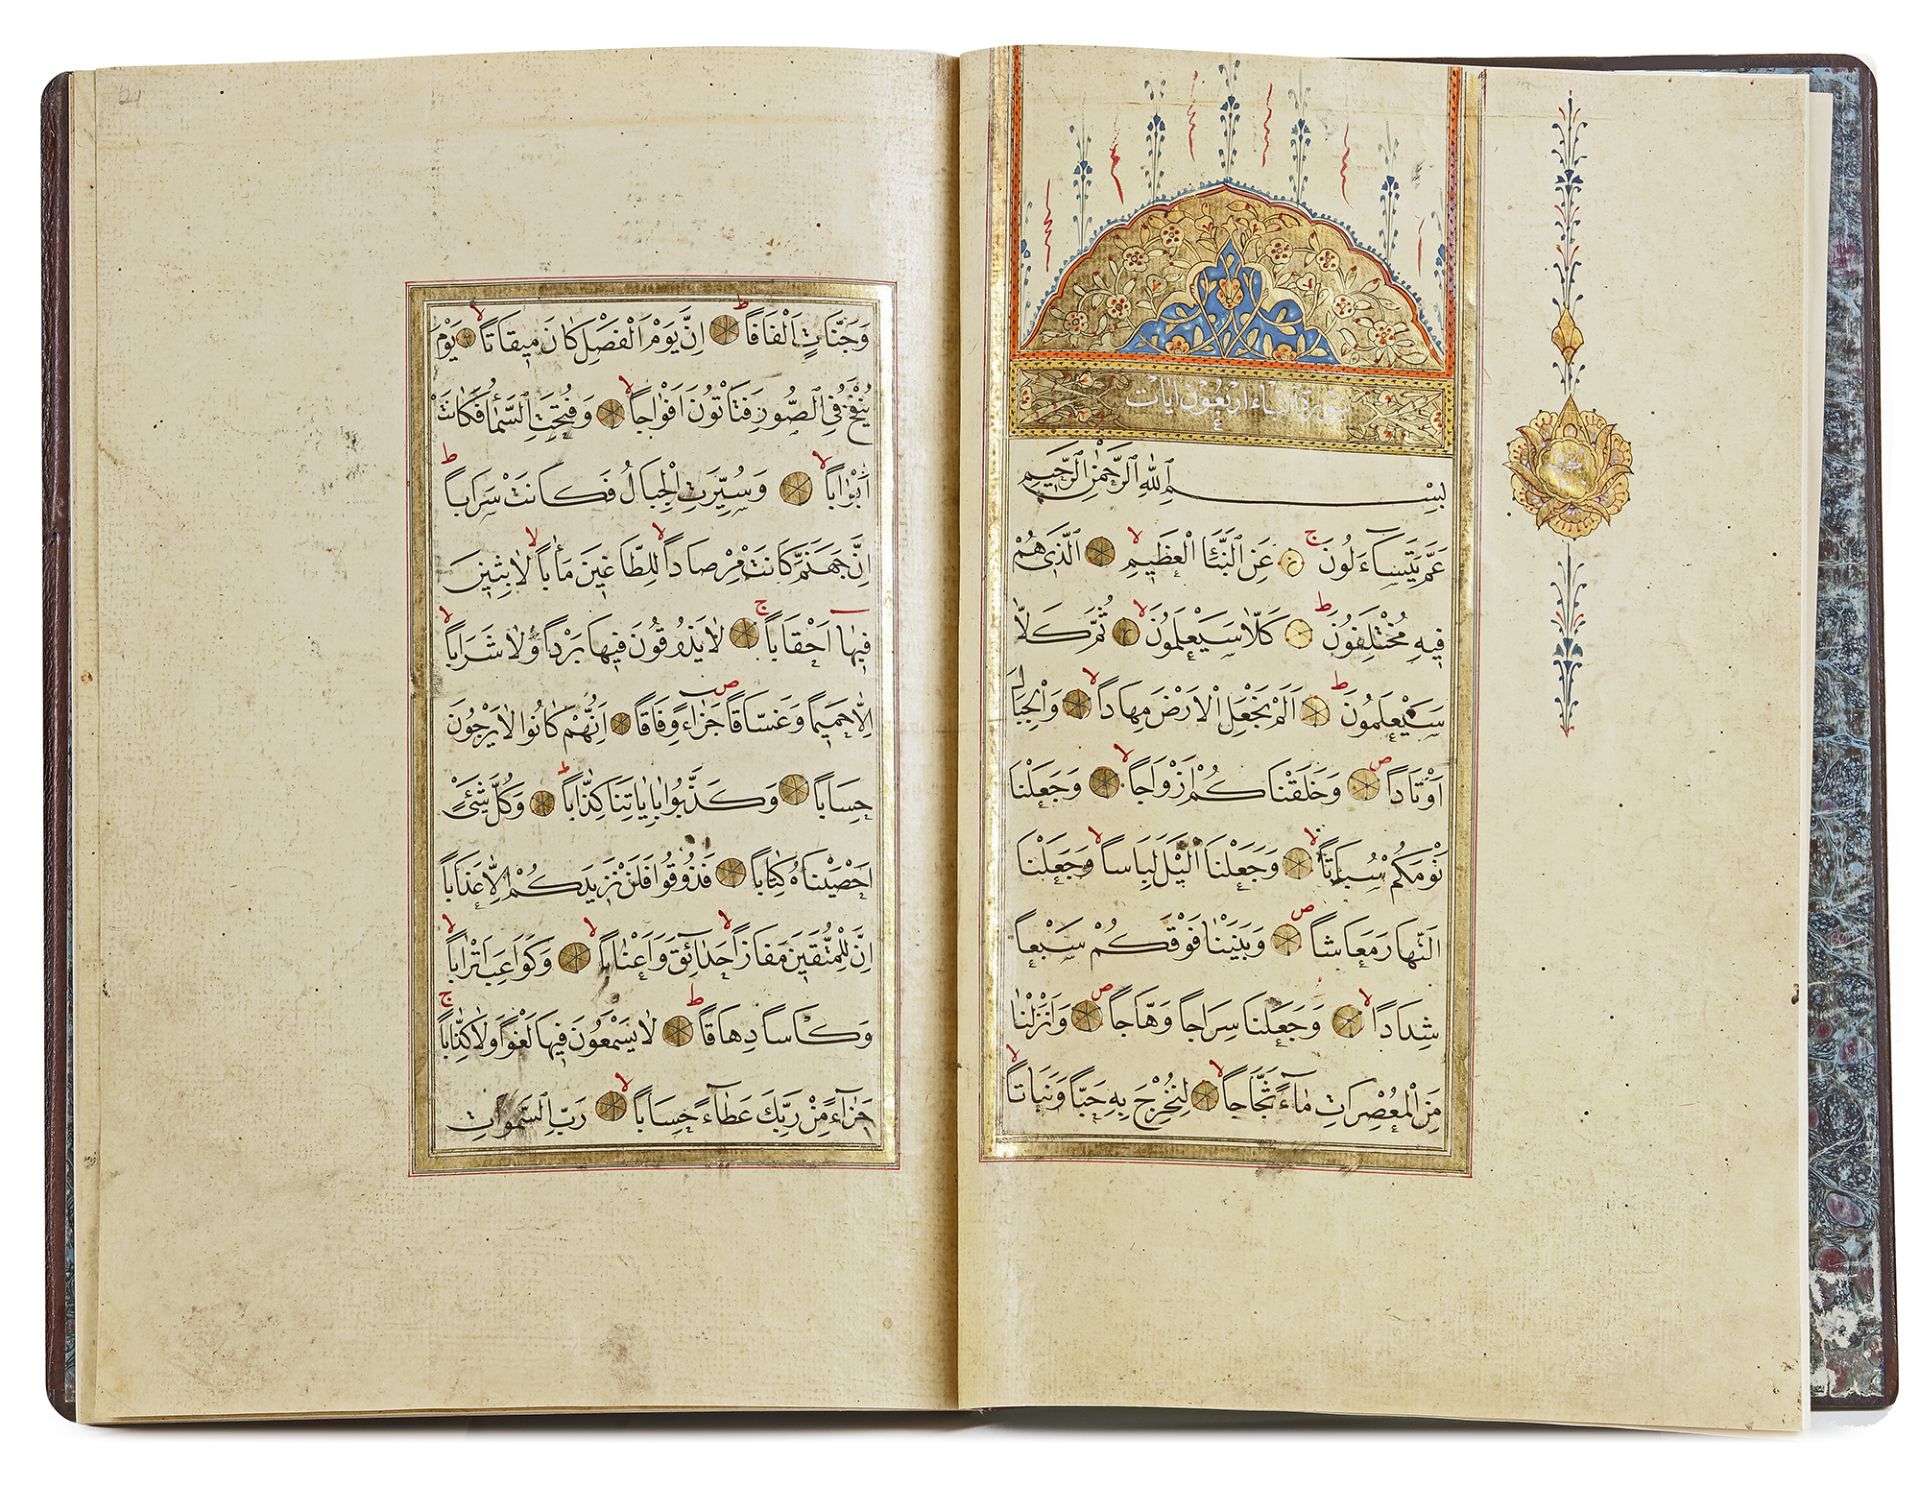 سورة النبأ اربعون آيات
بِسْمِ اللهِ الرَّحْمٰنِ الرَّحِيمِ
عَمَّ يَتَسَاءَلُونَ ج عَنِ النَّبَأِ الْعَظِيمِ لا الَّذِي هُمْ
فِيهِ مُخْتَلِفُونَ ط كَلَّا سَيَعْلَمُونَ لا ثُمَّ كَلَّا
سَيَعْلَمُونَ ط اَلَمْ نَجْعَلِ الْاَرْضَ مِهَاداً لا وَالْجِبَالَ
اَوْتَاداً ص وَخَلَقْنَاكُمْ اَزْوَاجاً لا وَجَعَلْنَا
نَوْمَكُمْ سُبَاتاً لا وَجَعَلْنَا الَّيْلَ لِبَاساً لا وَجَعَلْنَا
النَّهَارَ مَعَاشاً ص وَبَنَيْنَا فَوْقَكُمْ سَبْعاً
شِدَاداً لا وَجَعَلْنَا سِرَاجاً وَهَّاجاً ص وَاَنْزَلْنَا
مِنَ الْمُعْصِرَاتِ مَاءً ثَجَّاجاً لا لِنُخْرِجَ بِهِ حَبّاً وَنَبَاتاً لا
وَجَنَّاتٍ اَلْفَافاً ط اِنَّ يَوْمَ الْفَصْلِ كَانَ مِيقَاتاً لا يَوْمَ
يُنْفَخُ فِي الصُّورِ فَتَأْتُونَ اَفْوَاجاً لا وَفُتِحَتِ السَّمَاءُ فَكَانَتْ
اَبْوَاباً لا وَسُيِّرَتِ الْجِبَالُ فَكَانَتْ سَرَاباً ط
اِنَّ جَهَنَّمَ كَانَتْ مِرْصَاداً لا لِلطَّاغِينَ مَاٰباً لا لَابِثِينَ
فِيهَا اَحْقَاباً ج لَا يَذُوقُونَ فِيهَا بَرْداً وَلَا شَرَاباً لا
اِلَّا حَمِيماً وَغَسَّاقاً جَزَاءً وِفَاقاً ص اِنَّهُمْ كَانُوا لَا يَرْجُونَ
حِسَاباً وَكَذَّبُوا بِاٰيَاتِنَا كِذَّاباً ط وَكُلَّ شَيْءٍ
اَحْصَيْنَاهُ كِتَاباً فَذُوقُوا فَلَنْ نَزِيدَكُمْ اِلَّا عَذَاباً
اِنَّ لِلْمُتَّقِينَ مَفَازاً لا حَدَائِقَ وَاَعْنَاباً لا وَكَوَاعِبَ اَتْرَاباً لا
وَكَأْساً دِهَاقاً ط لَا يَسْمَعُونَ فِيهَا لَغْواً وَلَا كِذَّاباً ج
جَزَاءً مِنْ رَبِّكَ عَطَاءً حِسَاباً لا رَبِّ السَّمٰوَاتِ